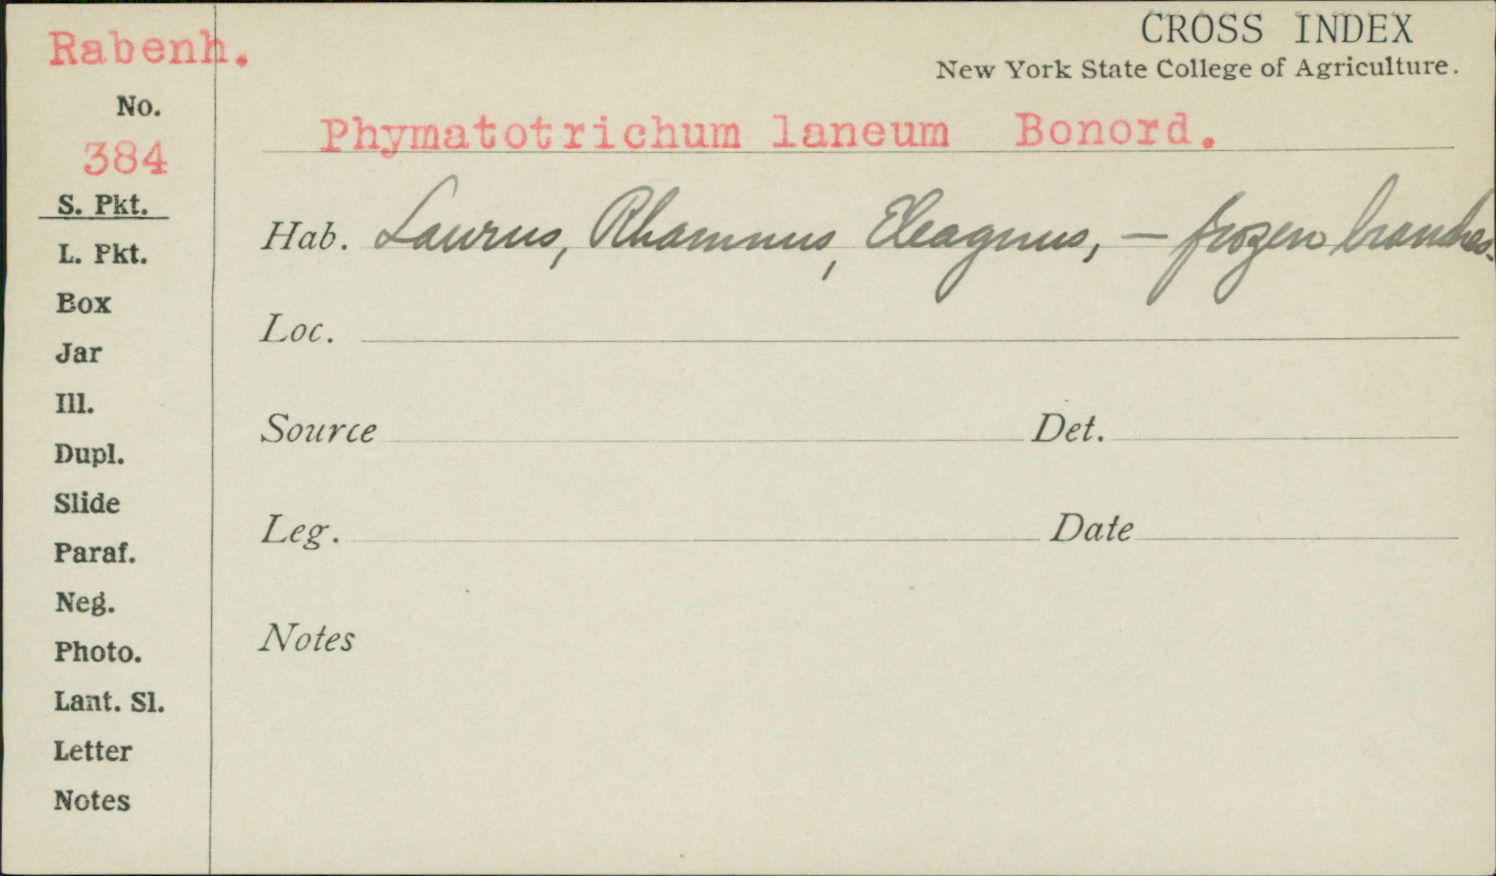 Rabenh.
CROSS INDEX
New York State College of Agriculture.
No.
384
Phymatotrichum laneum Bonord.
S. Pkt.
L. Pkt.
Box
Jar
Ill.
Dupl.
Slide
Paraf.
Neg.
Photo.
Lant. Sl.
Letter
Notes
Hab. Laurus, Rhamnus, Eleagnus, — frozen branches.
Loc.
Source Det.
Leg. Date
Notes